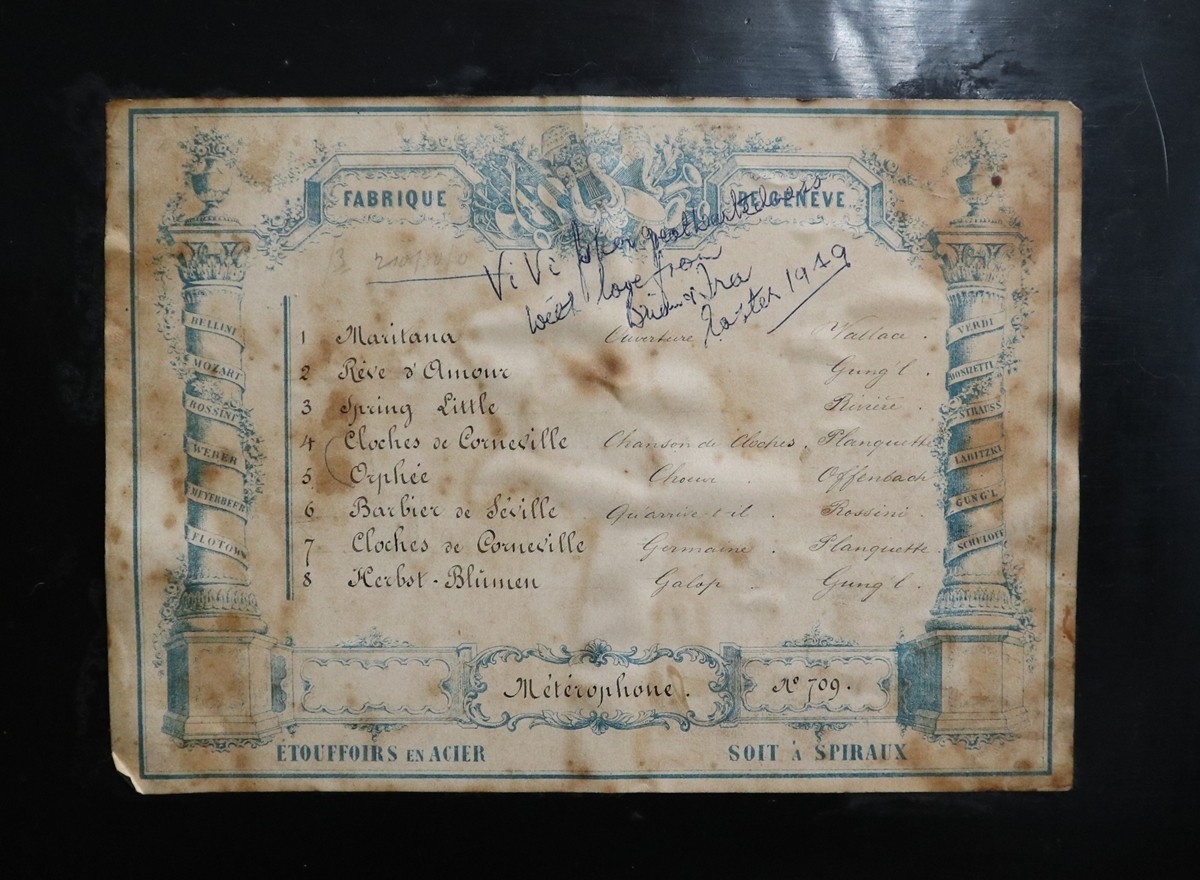 FABRIQUE DE GENÈVE
ViVi
with love from
Easter 1949
1 Maritana Ouverture. Wallace.
2 Rêve d'Amour Gung'l.
3 Spring Little Rivière.
4 Cloches de Corneville Chanson de Cloches. Planquette
5 Orphée Choeur. Offenbach
6 Barbier de Séville Qu'arrive-t-il. Rossini
7 Cloches de Corneville Germaine. Planquette.
8 Herbst-Blümen Galop Gung'l.
BELLINI
MOZART
ROSSINI
WEBER
MEYERBEER
FLOTOW
VERDI
DONIZETTI
STRAUSS
LABITZKI
GUNG'L
SCHULOFF
Métérophone. No 709.
ÉTOUFFOIRS EN ACIER SOIT À SPIRAUX